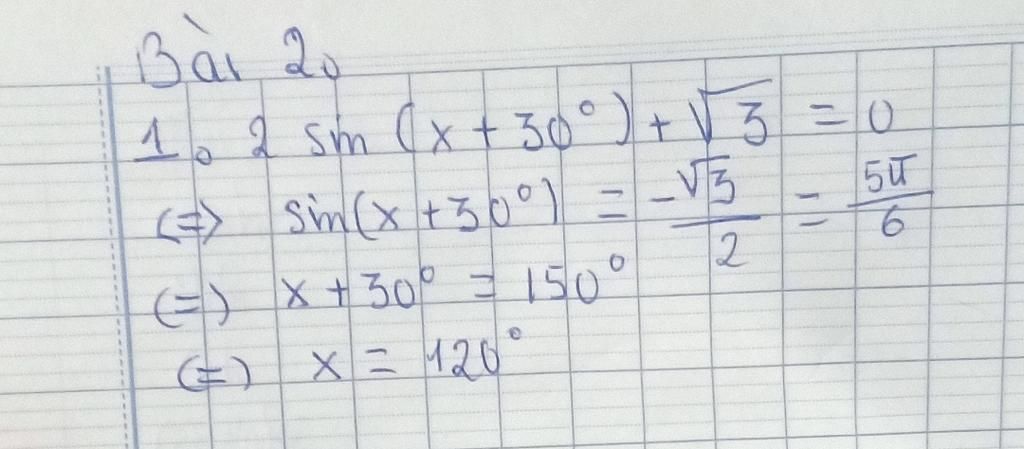 Bài 2.
1. 2 sin (x + 30°) + √3 = 0
(=> sin(x + 30°) = -√3/2 = 5π/6
(=) x + 30° = 150°
(=) x = 120°